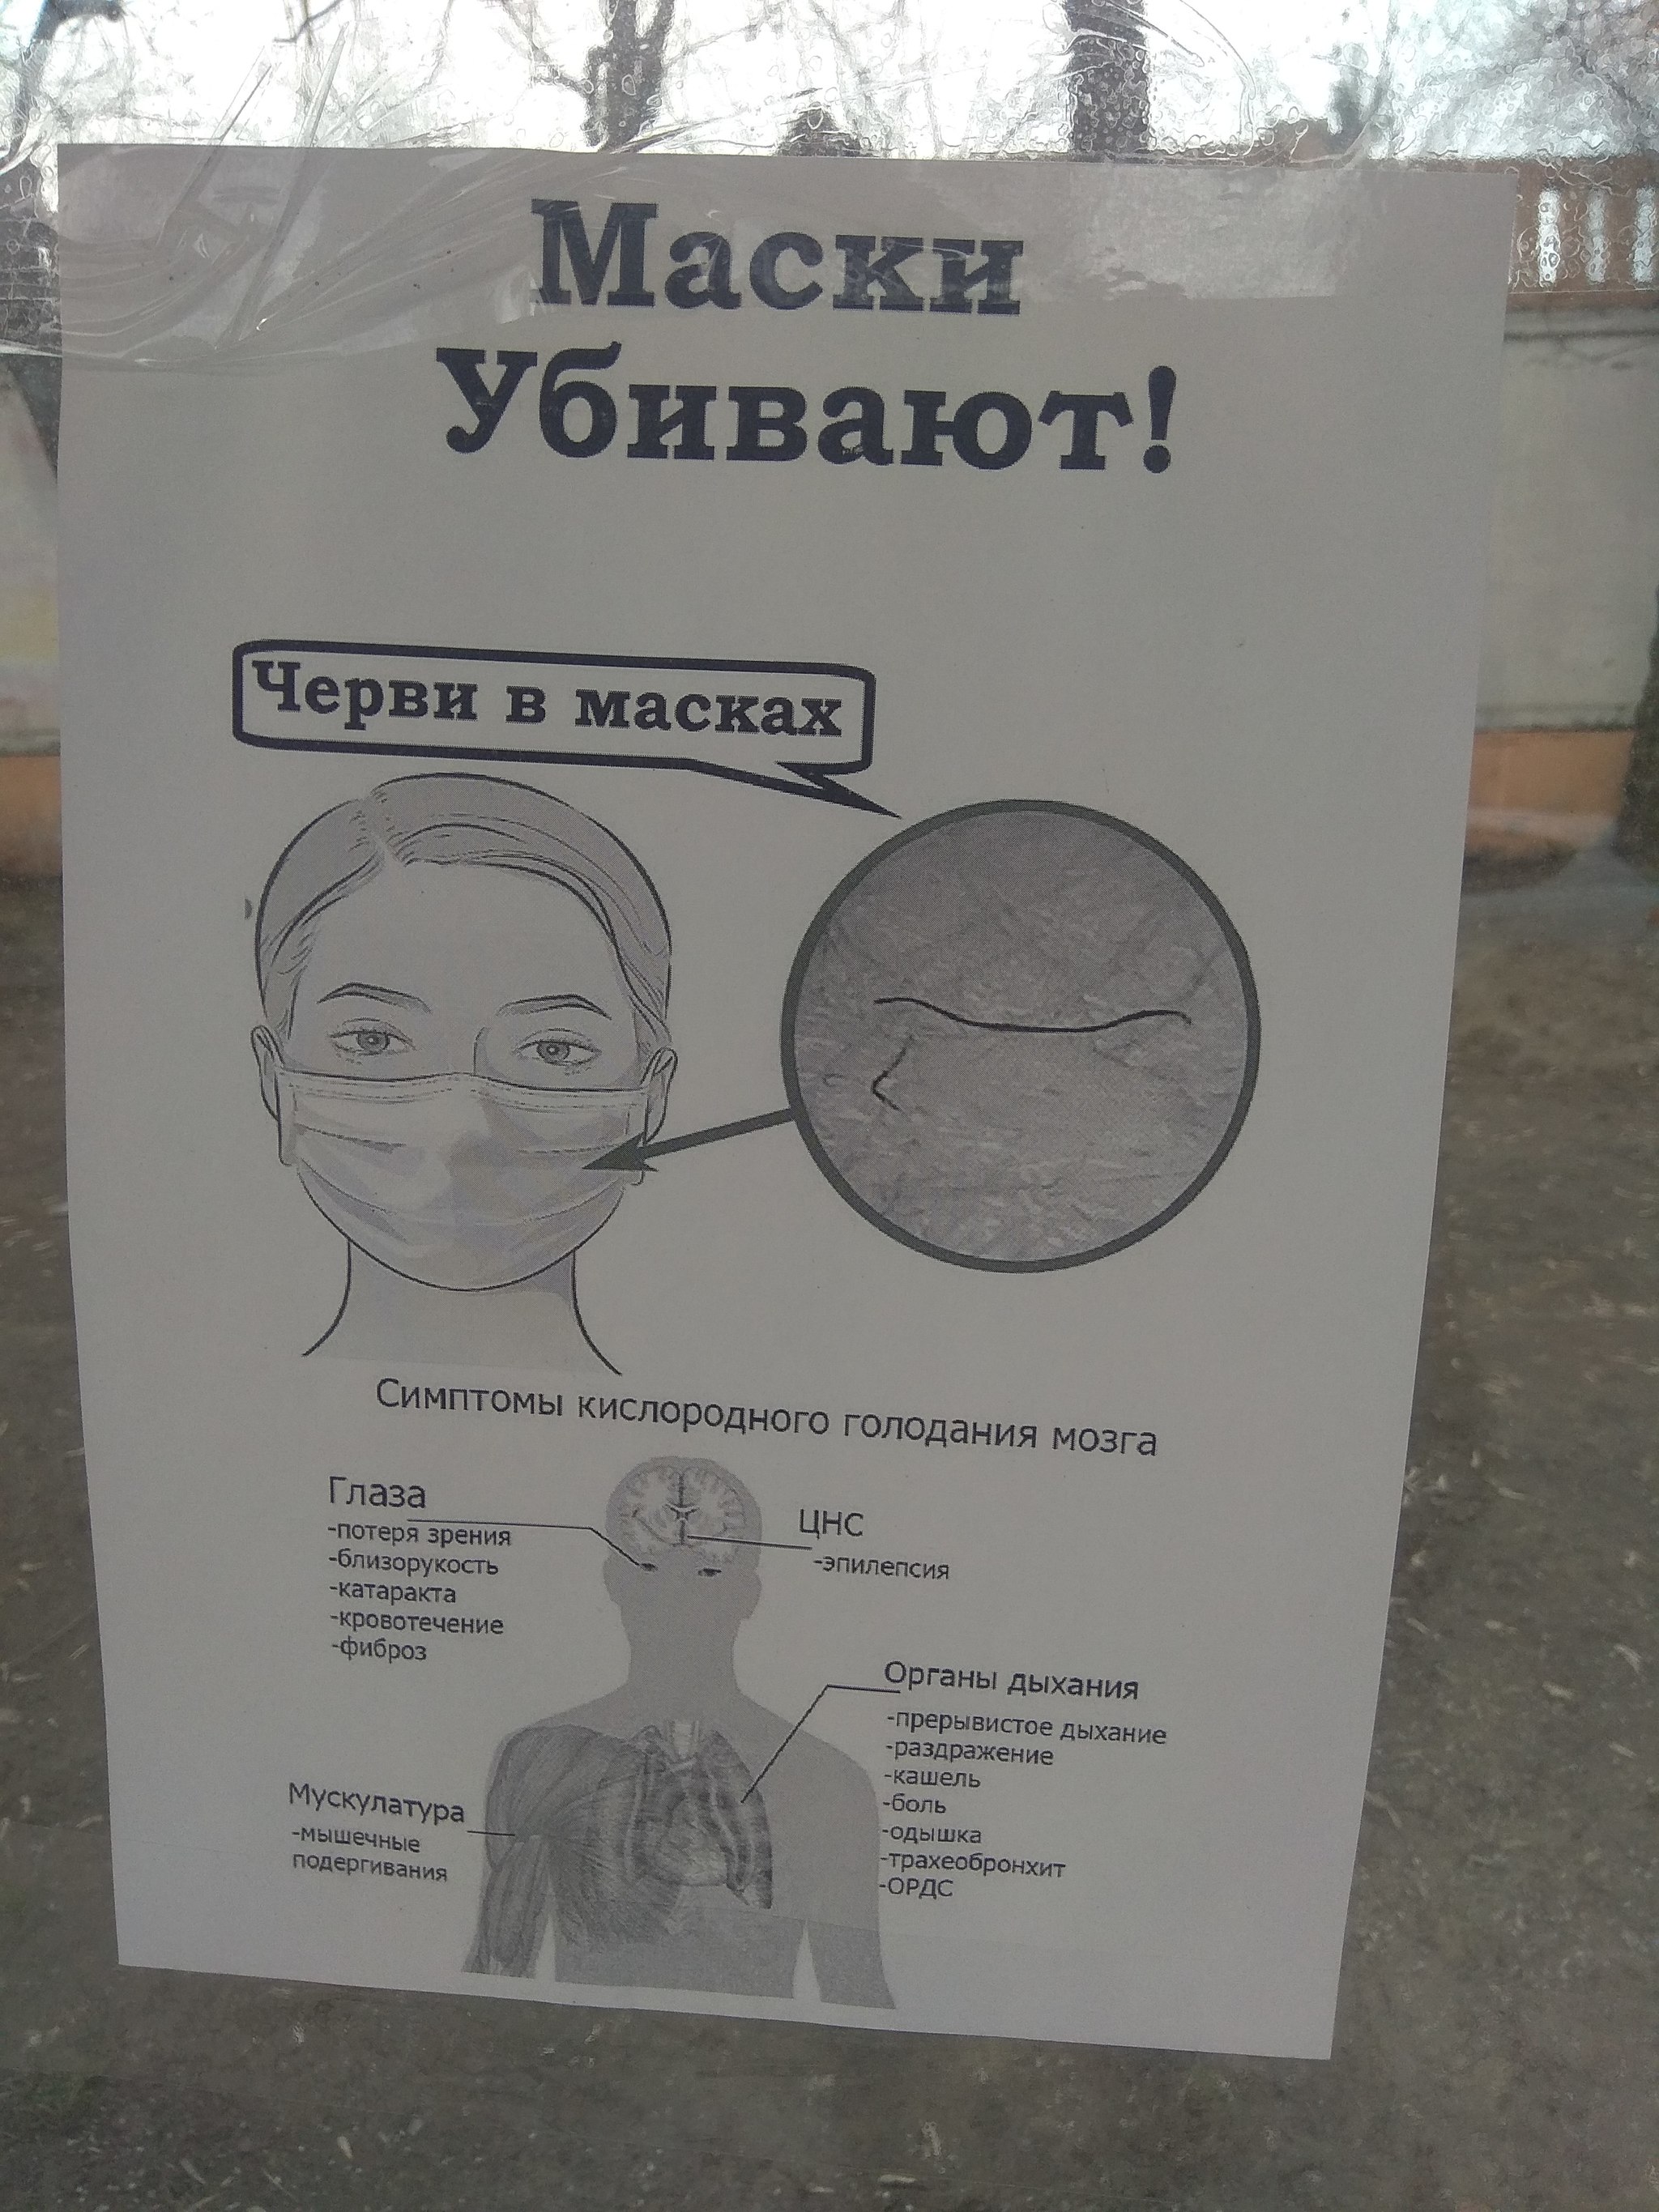 Маски
Убивают!
Черви в масках
Симптомы кислородного голодания мозга
Глаза
-потеря зрения
-близорукость
-катаракта
-кровотечение
-фиброз
ЦНС
-эпилепсия
Органы дыхания
-прерывистое дыхание
-раздражение
-кашель
-боль
-одышка
-трахеобронхит
-ОРДС
Мускулатура
-мышечные
подергивания